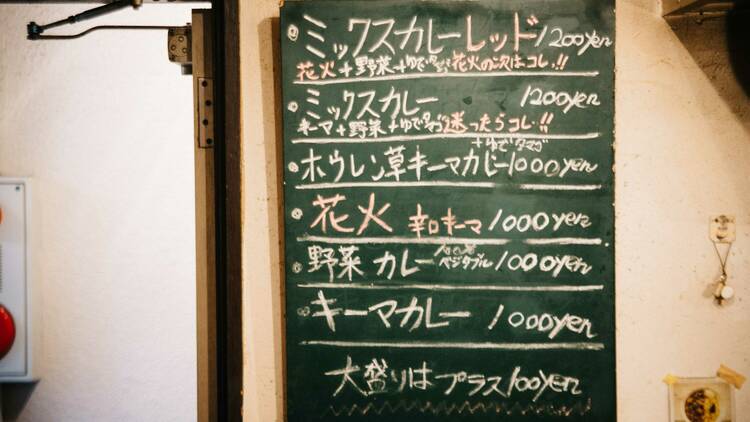 ミックスカレーレッド 1200yen
花火+野菜+ゆでタマゴ 花火の次はコレ!!
ミックスカレー 1200yen
キーマ+野菜+ゆでタマゴ 迷ったらコレ!!
+ゆでタマゴ
ホウレン草キーマカレー 1000yen
花火 辛口キーマ 1000yen
野菜カレー 100% ベジタブル 1000yen
キーマカレー 1000yen
大盛りはプラス100yen